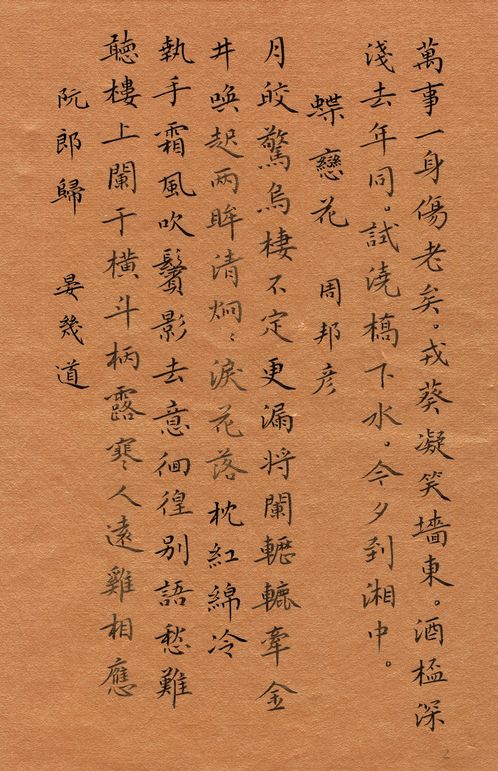 萬事一身傷老矣。戎葵凝笑墻東。酒桮深
淺去年同。試澆橋下水。今夕到湘中。
蝶戀花　周邦彦
月皎驚烏棲不定更漏將闌轣轆牽金
井喚起兩眸清炯炯淚花落枕紅綿冷
執手霜風吹鬢影去意徊徨别語愁難
聽樓上闌干橫斗柄露寒人遠雞相應
阮郎歸　晏幾道
2